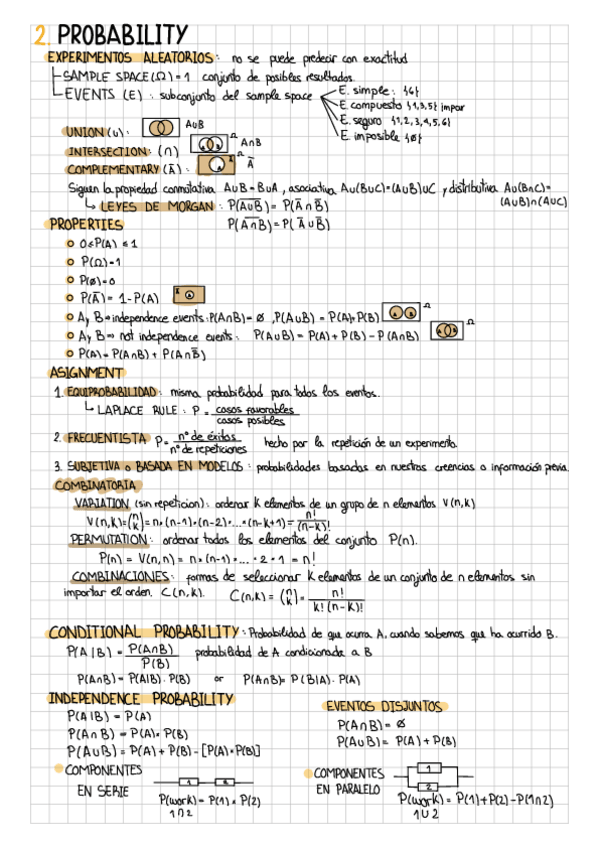 2. PROBABILITY
EXPERIMENTOS ALEATORIOS: no se puede predecir con exactitud
SAMPLE SPACE (Ω) = 1 conjunto de posibles resultados.
EVENTS (E) : subconjunto del sample space
E. simple : {6}
E. compuesto {1,3,5} impar
E. seguro {1,2,3,4,5,6}
E. imposible {ø}
UNION (∪) : A∪B
INTERSECTION : (∩) Ω A∩B
COMPLEMENTARY (Ā) : Ω Ā
Siguen la propiedad conmutativa A∪B = B∪A , asociativa A∪(B∪C)=(A∪B)∪C y distributiva A∪(B∩C)=
(A∪B)∩(A∪C)
LEYES DE MORGAN : P(A̅∪̅B̅) = P(Ā ∩ B̄)
P(A̅∩̅B̅) = P(Ā ∪ B̄)
PROPERTIES
0 ≤ P(A) ≤ 1
P(Ω) = 1
P(ø) = 0
P(Ā) = 1 - P(A)
A y B ⇒ independence events : P(A∩B) = ø , P(A∪B) = P(A)+P(B) Ω
A y B ⇒ not independence events : P(A∪B) = P(A) + P(B) - P(A∩B) Ω
P(A) = P(A∩B) + P(A∩B̄)
ASIGNMENT
1. EQUIPROBABILIDAD : misma probabilidad para todos los eventos.
LAPLACE RULE : P = casos favorables
casos posibles
2. FRECUENTISTA P = nº de éxitos
nº de repeticiones
hecho por la repetición de un experimento.
3. SUBJETIVA o BASADA EN MODELOS : probabilidades basadas en nuestras creencias o información previa.
COMBINATORIA
VARIATION (sin repeticion) : ordenar K elementos de un grupo de n elementos V(n,k)
V(n,k) = (n k) = n · (n-1) · (n-2) · ... · (n-k+1) = n! / (n-k)!
PERMUTATION : ordenar todos los elementos del conjunto P(n).
P(n) = V(n,n) = n · (n-1) · ... · 2 · 1 = n!
COMBINACIONES : formas de seleccionar K elementos de un conjunto de n elementos sin
importar el orden. C(n,k). C(n,k) = (n k) = n! / k!(n-k)!
CONDITIONAL PROBABILITY : Probabilidad de que ocurra A, cuando sabemos que ha ocurrido B.
P(A|B) = P(A∩B) / P(B) probabilidad de A condicionada a B
P(A∩B) = P(A|B) · P(B) or P(A∩B) = P(B|A) · P(A)
INDEPENDENCE PROBABILITY
P(A|B) = P(A)
P(A∩B) = P(A) · P(B)
P(A∪B) = P(A) + P(B) - [P(A) · P(B)]
EVENTOS DISJUNTOS
P(A∩B) = ø
P(A∪B) = P(A) + P(B)
COMPONENTES
EN SERIE
1 2
P(work) = P(1) · P(2)
1∩2
COMPONENTES
EN PARALELO
1
2
P(work) = P(1)+P(2)-P(1∩2)
1∪2